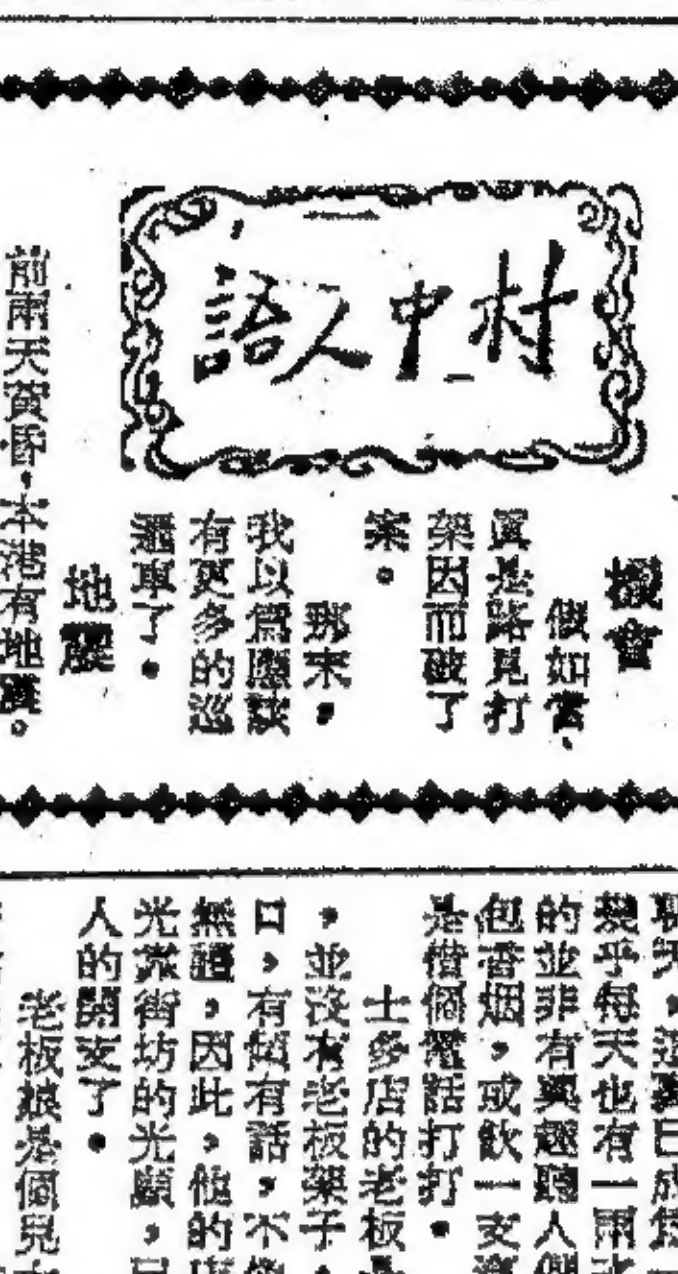 村中人語
機會
假如當、
真是路見打
架因而破了
案。
那末，
我以為應該
有更多的巡
邏車了。
地震
前兩天黃昏，本港有地震。
聊天，這
幾乎每天也有一兩
的並非有興趣聽人
包香烟，或飲一支
是借個電話打打。
士多店的老板
，並沒有老板架子，
口，有頃有話，不
無譜，因此，他的
光微街坊的光顧，
人的開支了。
老板娘是個兒